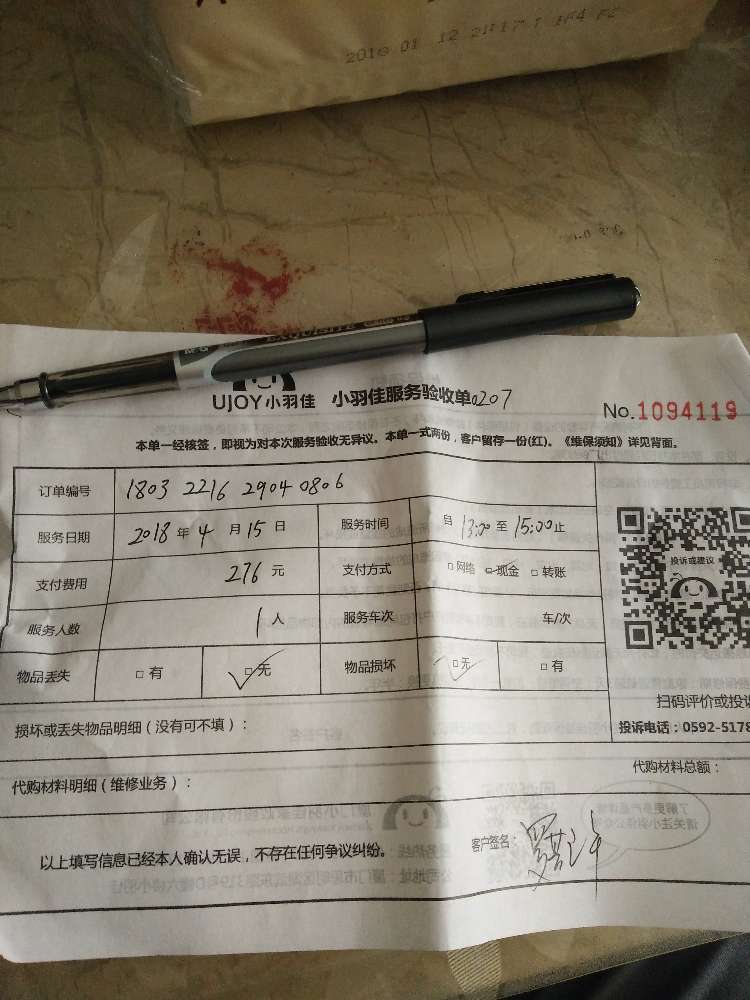 2018 01 12
EXQUISITE
UJOY小羽佳 小羽佳服务验收单0207
No.1094119
本单一经核签，即视为对本次服务验收无异议。本单一式两份，客户留存一份(红)。《维保须知》详见背面。
订单编号 1803 2216 2904 0806
服务日期 2018年4月15日 服务时间 自13:00至15:00止
支付费用 276元 支付方式 □网络 □现金 □转账
服务人数 1人 服务车次 车/次
物品丢失 □有 □无 物品损坏 □无 □有
投诉或建议
扫码评价或投诉
投诉电话：0592-5178
损坏或丢失物品明细（没有可不填）：
代购材料明细（维修业务）： 代购材料总额：
以上填写信息已经本人确认无误，不存在任何争议纠纷。 客户签名：